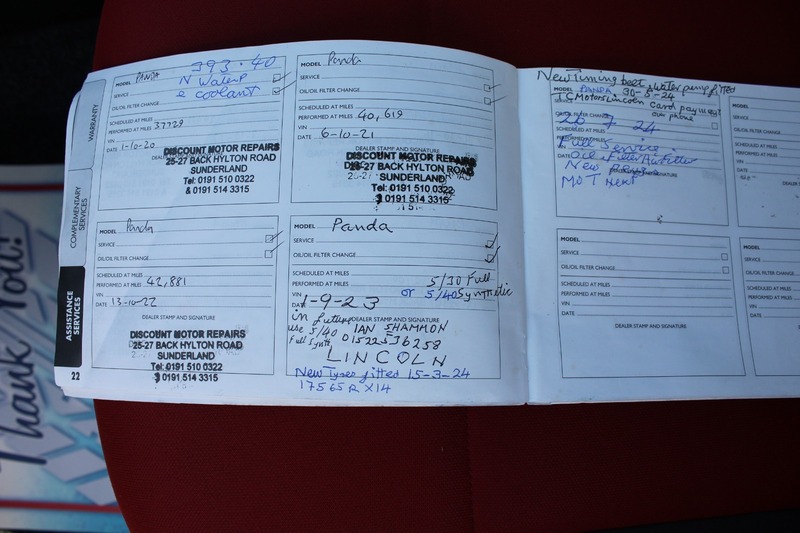 393.40
MODEL PANDA
N Water P
SERVICE
& coolant
OIL/OIL FILTER CHANGE
SCHEDULED AT MILES
PERFORMED AT MILES 37729
VIN
DATE 1-10-20
DISCOUNT MOTOR REPAIRS
25-27 BACK HYLTON ROAD
SUNDERLAND
Tel: 0191 510 0322
& 0191 514 3315
MODEL Panda
SERVICE
OIL/OIL FILTER CHANGE
SCHEDULED AT MILES
PERFORMED AT MILES 40,619
VIN
DATE 6-10-21
DEALER STAMP AND SIGNATURE
DISCOUNT MOTOR REPAIRS
25-27 BACK HYLTON ROAD
SUNDERLAND
Tel: 0191 510 0322
0191 514 3315
MODEL Panda
SERVICE
OIL/OIL FILTER CHANGE
SCHEDULED AT MILES
PERFORMED AT MILES 42,881
VIN
DATE 13-10-22
DEALER STAMP AND SIGNATURE
DISCOUNT MOTOR REPAIRS
25-27 BACK HYLTON ROAD
SUNDERLAND
Tel: 0191 510 0322
0191 514 3315
MODEL Panda
SERVICE
OIL/OIL FILTER CHANGE
SCHEDULED AT MILES
PERFORMED AT MILES 5/30 Full
VIN or 5/40 Synthetic
DATE 1-9-23
in future DEALER STAMP AND SIGNATURE
use 5/40 IAN SHAMMON
Full Synth 01522 536258
LINCOLN
New Tyres fitted 15-3-24
175 65 R X14
WARRANTY
COMPLEMENTARY SERVICES
ASSISTANCE SERVICES
22
New Timing belt & water pump fitted
MODEL PANDA 30-5-24
TC Motors Lincoln Card payment
our phone
OIL/OIL FILTER CHANGE
26 7 24
SCHEDULED AT MILES
PERFORMED AT MILES
Full Service
DATE Oil & Filter Air Filter
New
MOT Next
MODEL
SERVICE
OIL/OIL FILTER CHANGE
SCHEDULED AT MILES
PERFORMED AT MILES
VIN
DATE
DEALER STAMP AND SIGNATURE
MODEL
SERVICE
OIL/OIL
SCHEDULED
PERFORMED
VIN
DATE
Thank You!